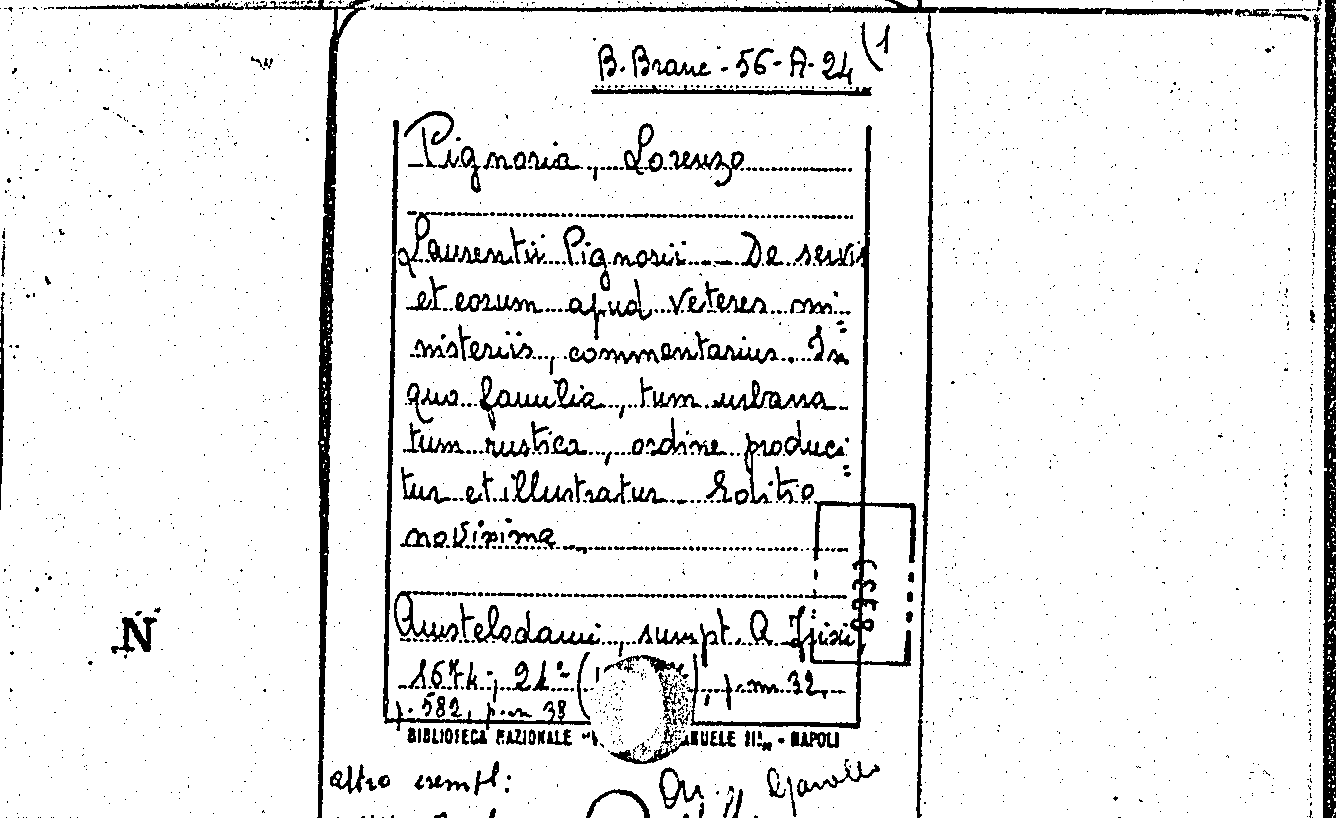 (1
B. Branc - 56 - A - 24
Pignoria, Lorenzo
Laurentii Pignorii -- De servis
et eorum apud veteres mi=
nisteriis, commentarius. In
quo familia, tum urbana
tum rustica, ordine produci=
tur et illustratur. Editio
novissima
Amstelodami, sumpt. A Frisii,
1674; 24° p. nn 32,
p. 582, p. n 38
BIBLIOTECA NAZIONALE ANUELE III„ - NAPOLI
altro esempl:
N